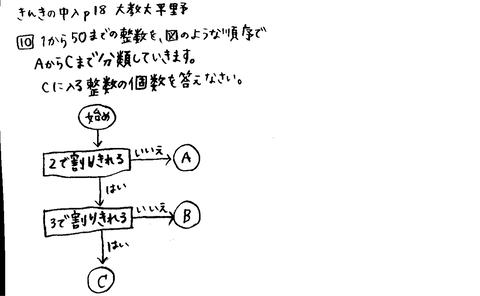 きんきの中入p18 大教大平野
10 1から50までの整数を、図のような順序で
AからCまで分類していきます。
Cに入る整数の個数を答えなさい。
始め
2で割りきれる
いいえ
A
はい
3で割りきれる
いいえ
B
はい
C